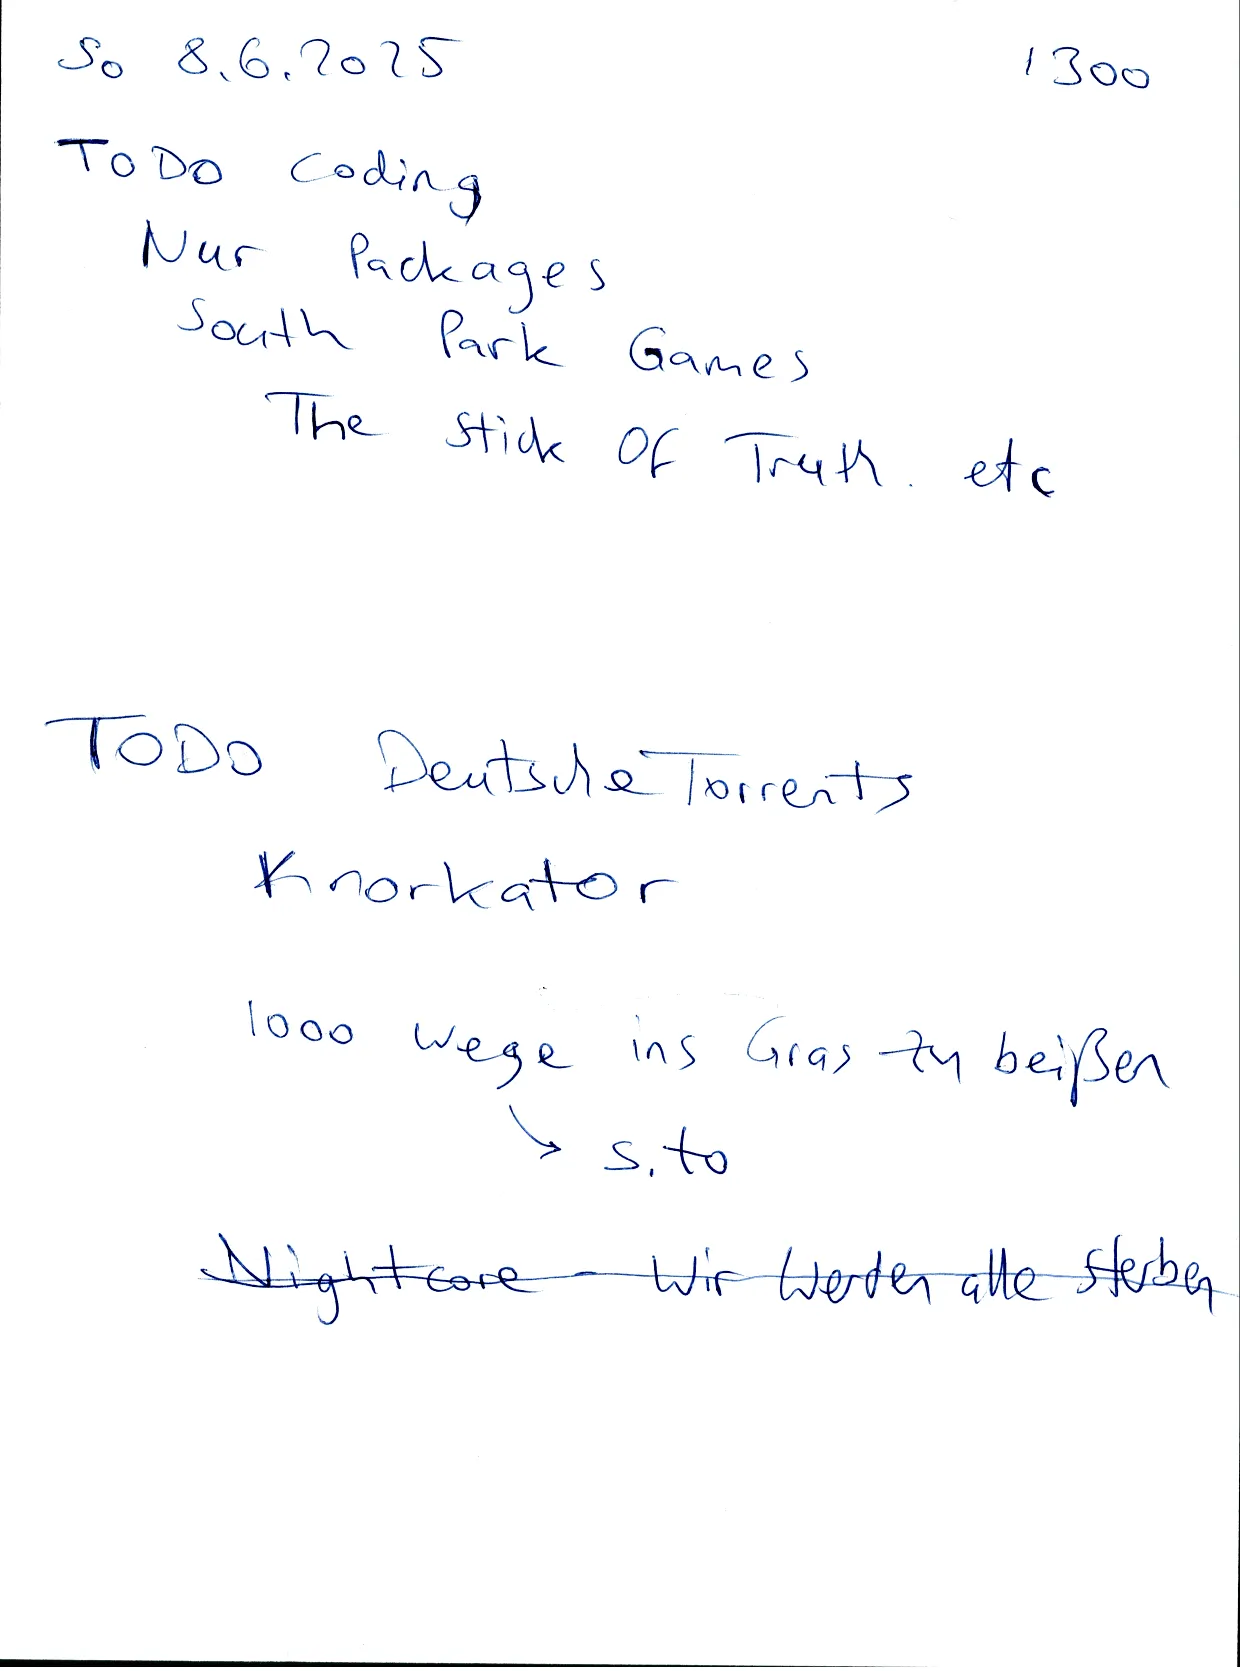 So 8.6.2025 1300
ToDo Coding
Nur Packages
South Park Games
The Stick Of Truth. etc
TODO Deutsche Torrents
Knorkator
1000 Wege ins Gras zu beißen
↘ s.to
Nightcore - Wir Werden alle Sterben